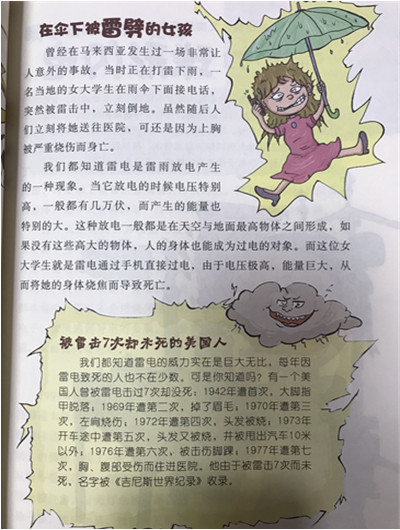 在伞下被雷劈的女孩
曾经在马来西亚发生过一场非常让
人意外的事故。当时正在打雷下雨，一
名当地的女大学生在雨伞下面接电话，
突然被雷击中，立刻倒地。虽然随后人
们立刻将她送往医院，可还是因为上胸
被严重烧伤而身亡。
我们都知道雷电是雷雨放电产生
的一种现象。当它放电的时候电压特别
高，一般都有几万伏，而产生的能量也
特别的大。这种放电一般都是在天空与地面最高物体之间形成。如
果没有这些高大的物体，人的身体也能成为过电的对象。而这位女
大学生就是雷电通过手机直接过电，由于电压极高，能量巨大，从
而将她的身体烧焦而导致死亡。
被雷击7次却未死的美国人
我们都知道雷电的威力实在是巨大无比，每年因
雷电致死的人也不在少数。可是你知道吗？有一个美
国人曾被雷电击过7次却没死：1942年遭首次，大脚指
甲脱落；1969年遭第二次，掉了眉毛；1970年遭第三
次，左肩烧伤；1972年遭第四次，头发被烧；1973年
开车途中遭第五次，头发又被烧，并被甩出汽车10米
以外；1976年遭第六次，被击伤脚踝；1977年遭第七
次，胸、腹部受伤而住进医院。他由于被雷击7次而未
死，名字被《吉尼斯世界纪录》收录。